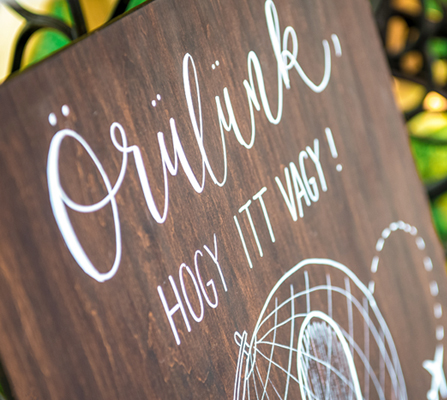 Örülünk,
HOGY ITT VAGY!